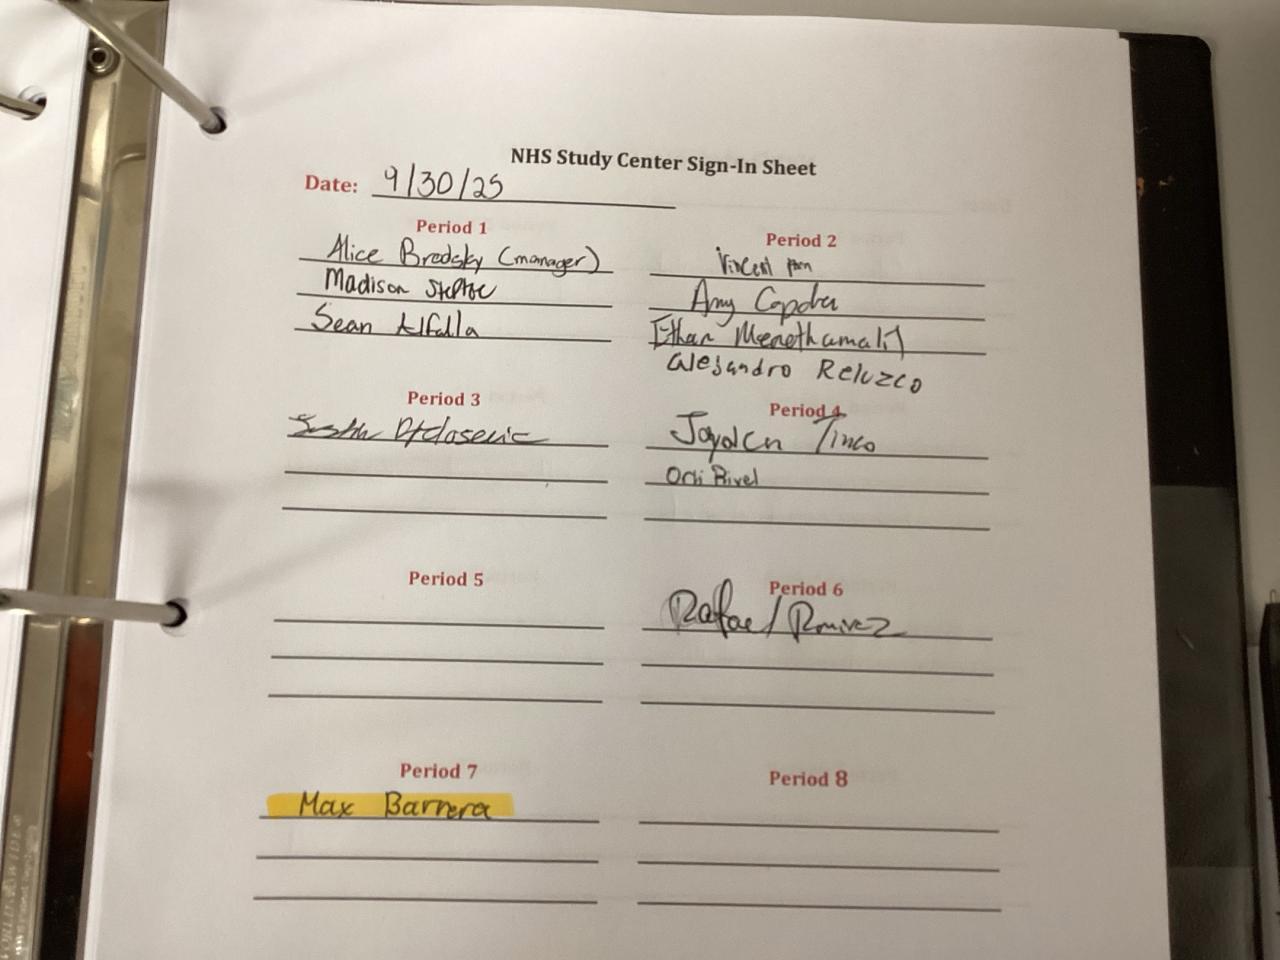 NHS Study Center Sign-In Sheet
Date: 9/30/25
Period 1
Alice Brodsky (manager)
Madison
Sean Alfalla
Period 2
Vincent
Amy
Ethan
Alesandro Reluzco
Period 3
Period 4
Jayden Tinco
Period 5
Period 6
Rafael Ramirez
Period 7
Max Barrera
Period 8